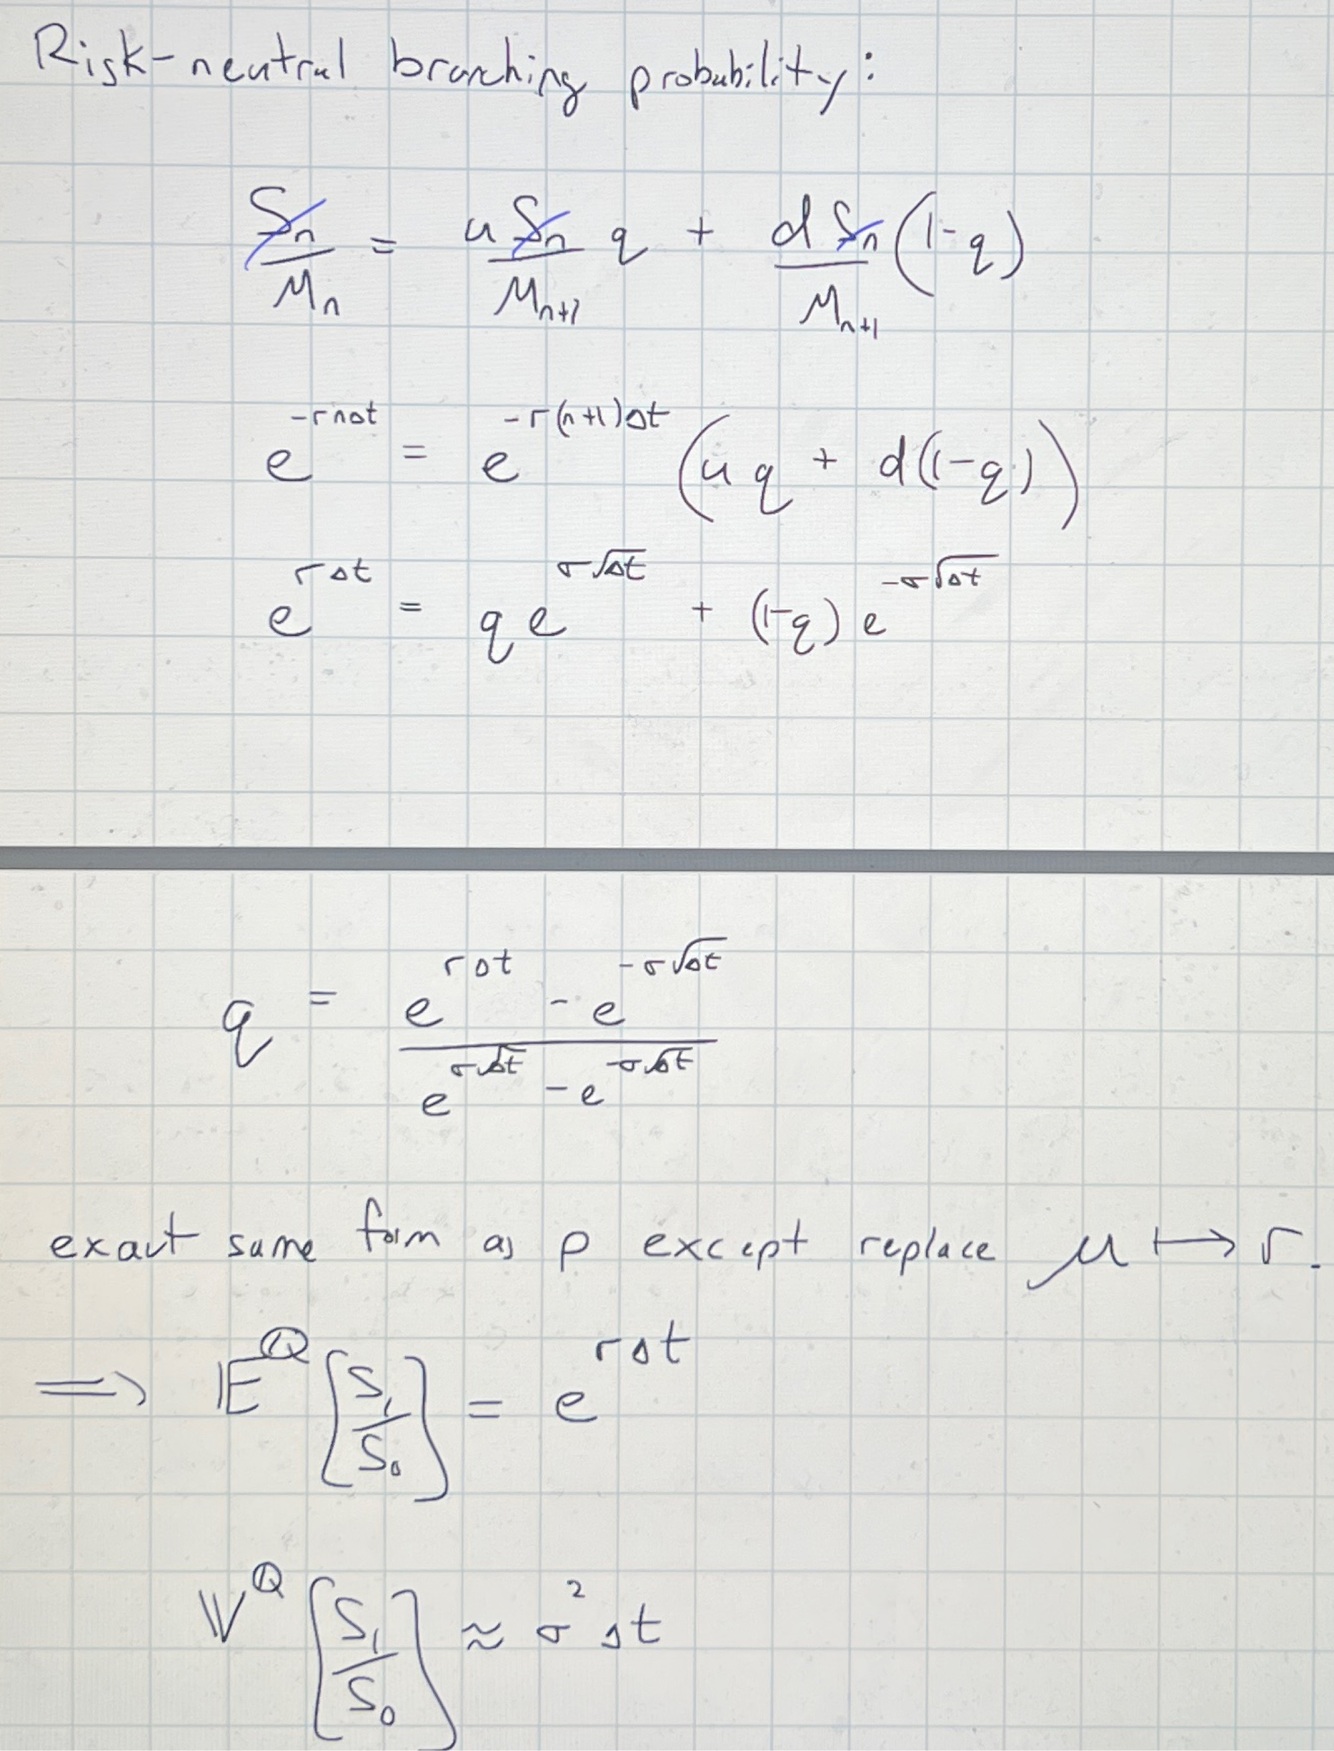 Risk-neutral branching probability:
Sₙ/Mₙ = uSₙ/Mₙ₊₁ q + dSₙ/Mₙ₊₁ (1-q)
e^{-rnΔt} = e^{-r(n+1)Δt} (uq + d(1-q))
e^{rΔt} = q e^{σ√Δt} + (1-q) e^{-σ√Δt}
q = (e^{rΔt} - e^{-σ√Δt}) / (e^{σ√Δt} - e^{-σ√Δt})
exact same form as p except replace μ ↦ r.
⟹ 𝔼^ℚ [S₁/S₀] = e^{rΔt}
𝕍^ℚ [S₁/S₀] ≈ σ²Δt